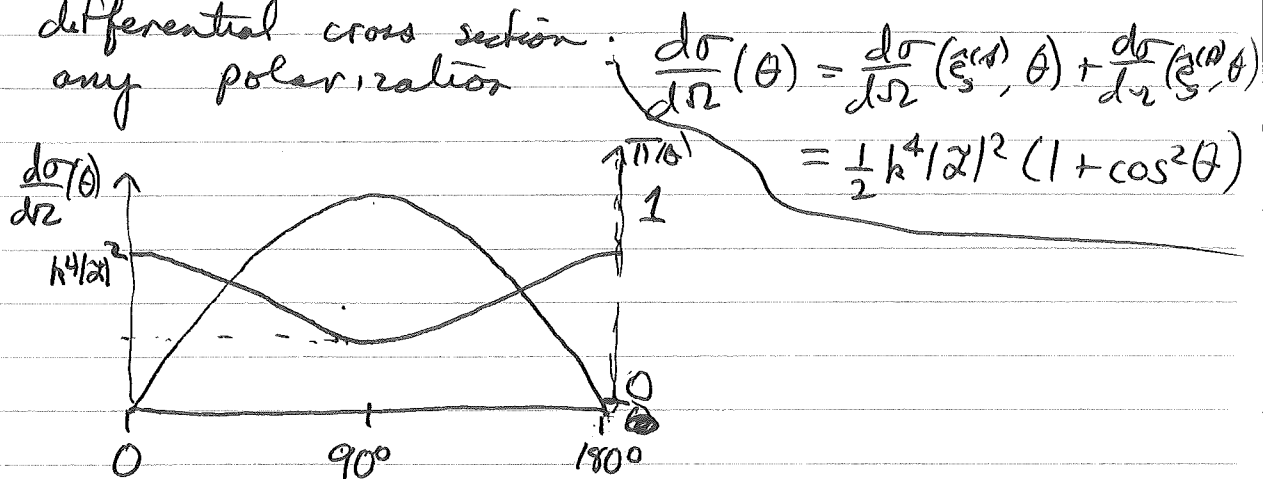 differential cross section .
any polarization
dσ/dΩ (θ) = dσ/dΩ (ε̂_s^(⊥), θ) + dσ/dΩ (ε̂_s^(∥), θ)
= 1/2 k⁴|α̃|² (1 + cos²θ)
dσ/dΩ (θ)
Π(θ)
1
k⁴|α̃|²
0
0 90° 180°